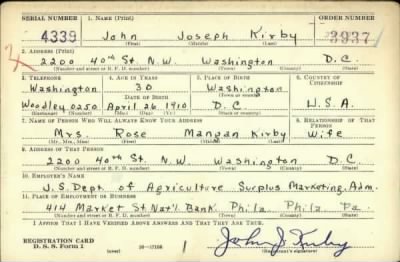 SERIAL NUMBER 1. NAME (Print) ORDER NUMBER
4339 John Joseph Kirby 3937
(First) (Middle) (Last)
2. ADDRESS (Print)
2200 40th St. N.W. Washington D.C.
(Number and street or R. F. D. number) (Town) (County) (State)
3. TELEPHONE 4. AGE IN YEARS 5. PLACE OF BIRTH 6. COUNTRY OF CITIZENSHIP
Washington 30 Washington
DATE OF BIRTH
Woodley 0250 April 26 1910 D.C U.S.A.
(Exchange) (Number) (Mo.) (Day) (Yr.) (State or country)
7. NAME OF PERSON WHO WILL ALWAYS KNOW YOUR ADDRESS 8. RELATIONSHIP OF THAT PERSON
Mrs. Rose Mangan Kirby Wife
(Mr., Mrs., Miss) (First) (Middle) (Last)
9. ADDRESS OF THAT PERSON
2200 40th St. N.W. Washington D.C
(Number and street or R. F. D. number) (Town) (County) (State)
10. EMPLOYER'S NAME
U.S. Dept. of Agriculture Surplus Marketing Adm.
11. PLACE OF EMPLOYMENT OR BUSINESS
414 Market St. Nat'l. Bank Phila Phila Pa.
(Number and street or R. F. D. number) (Town) (County) (State)
I AFFIRM THAT I HAVE VERIFIED ABOVE ANSWERS AND THAT THEY ARE TRUE.
REGISTRATION CARD
D. S. S. Form 1 (over) 16—17105 John J Kirby
(Registrant's signature)